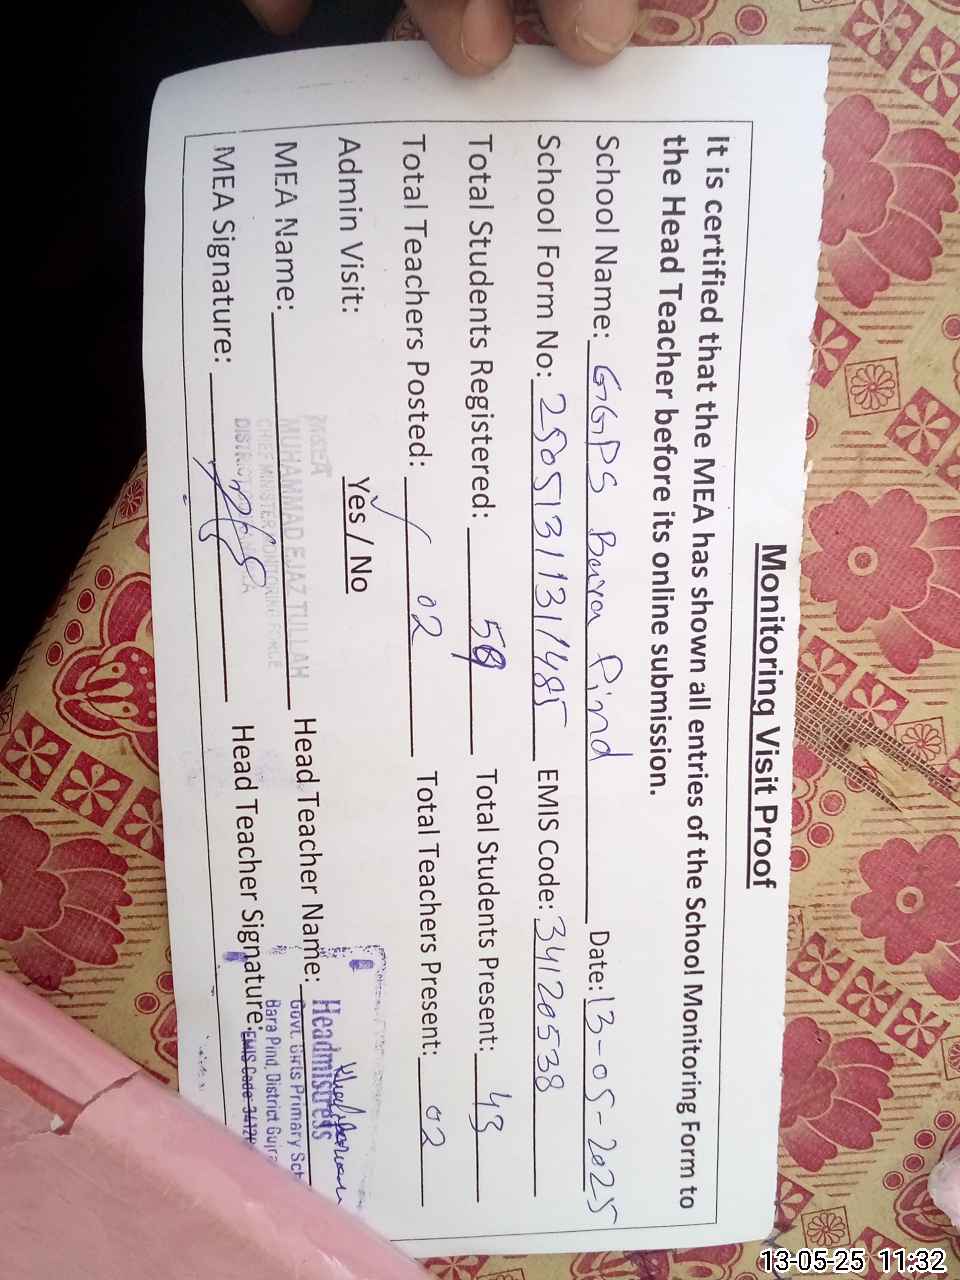 Monitoring Visit Proof
It is certified that the MEA has shown all entries of the School Monitoring Form to
the Head Teacher before its online submission.
School Name: GGPS Bara Pind Date: 13-05-2025
School Form No: 2505131131485 EMIS Code: 34120538
Total Students Registered: 59 Total Students Present: 43
Total Teachers Posted: 02 Total Teachers Present: 02
Admin Visit: Yes / No
MEA Name: MUHAMMAD EJAZ TULLAH Head Teacher Name:
CHIEF MINISTER MONITORING FORCE
MEA Signature: Head Teacher Signature:
Headmistress
Govt. Girls Primary Sch
Bara Pind, District Gujra
EMIS Code: 3412
13-05-25 11:32